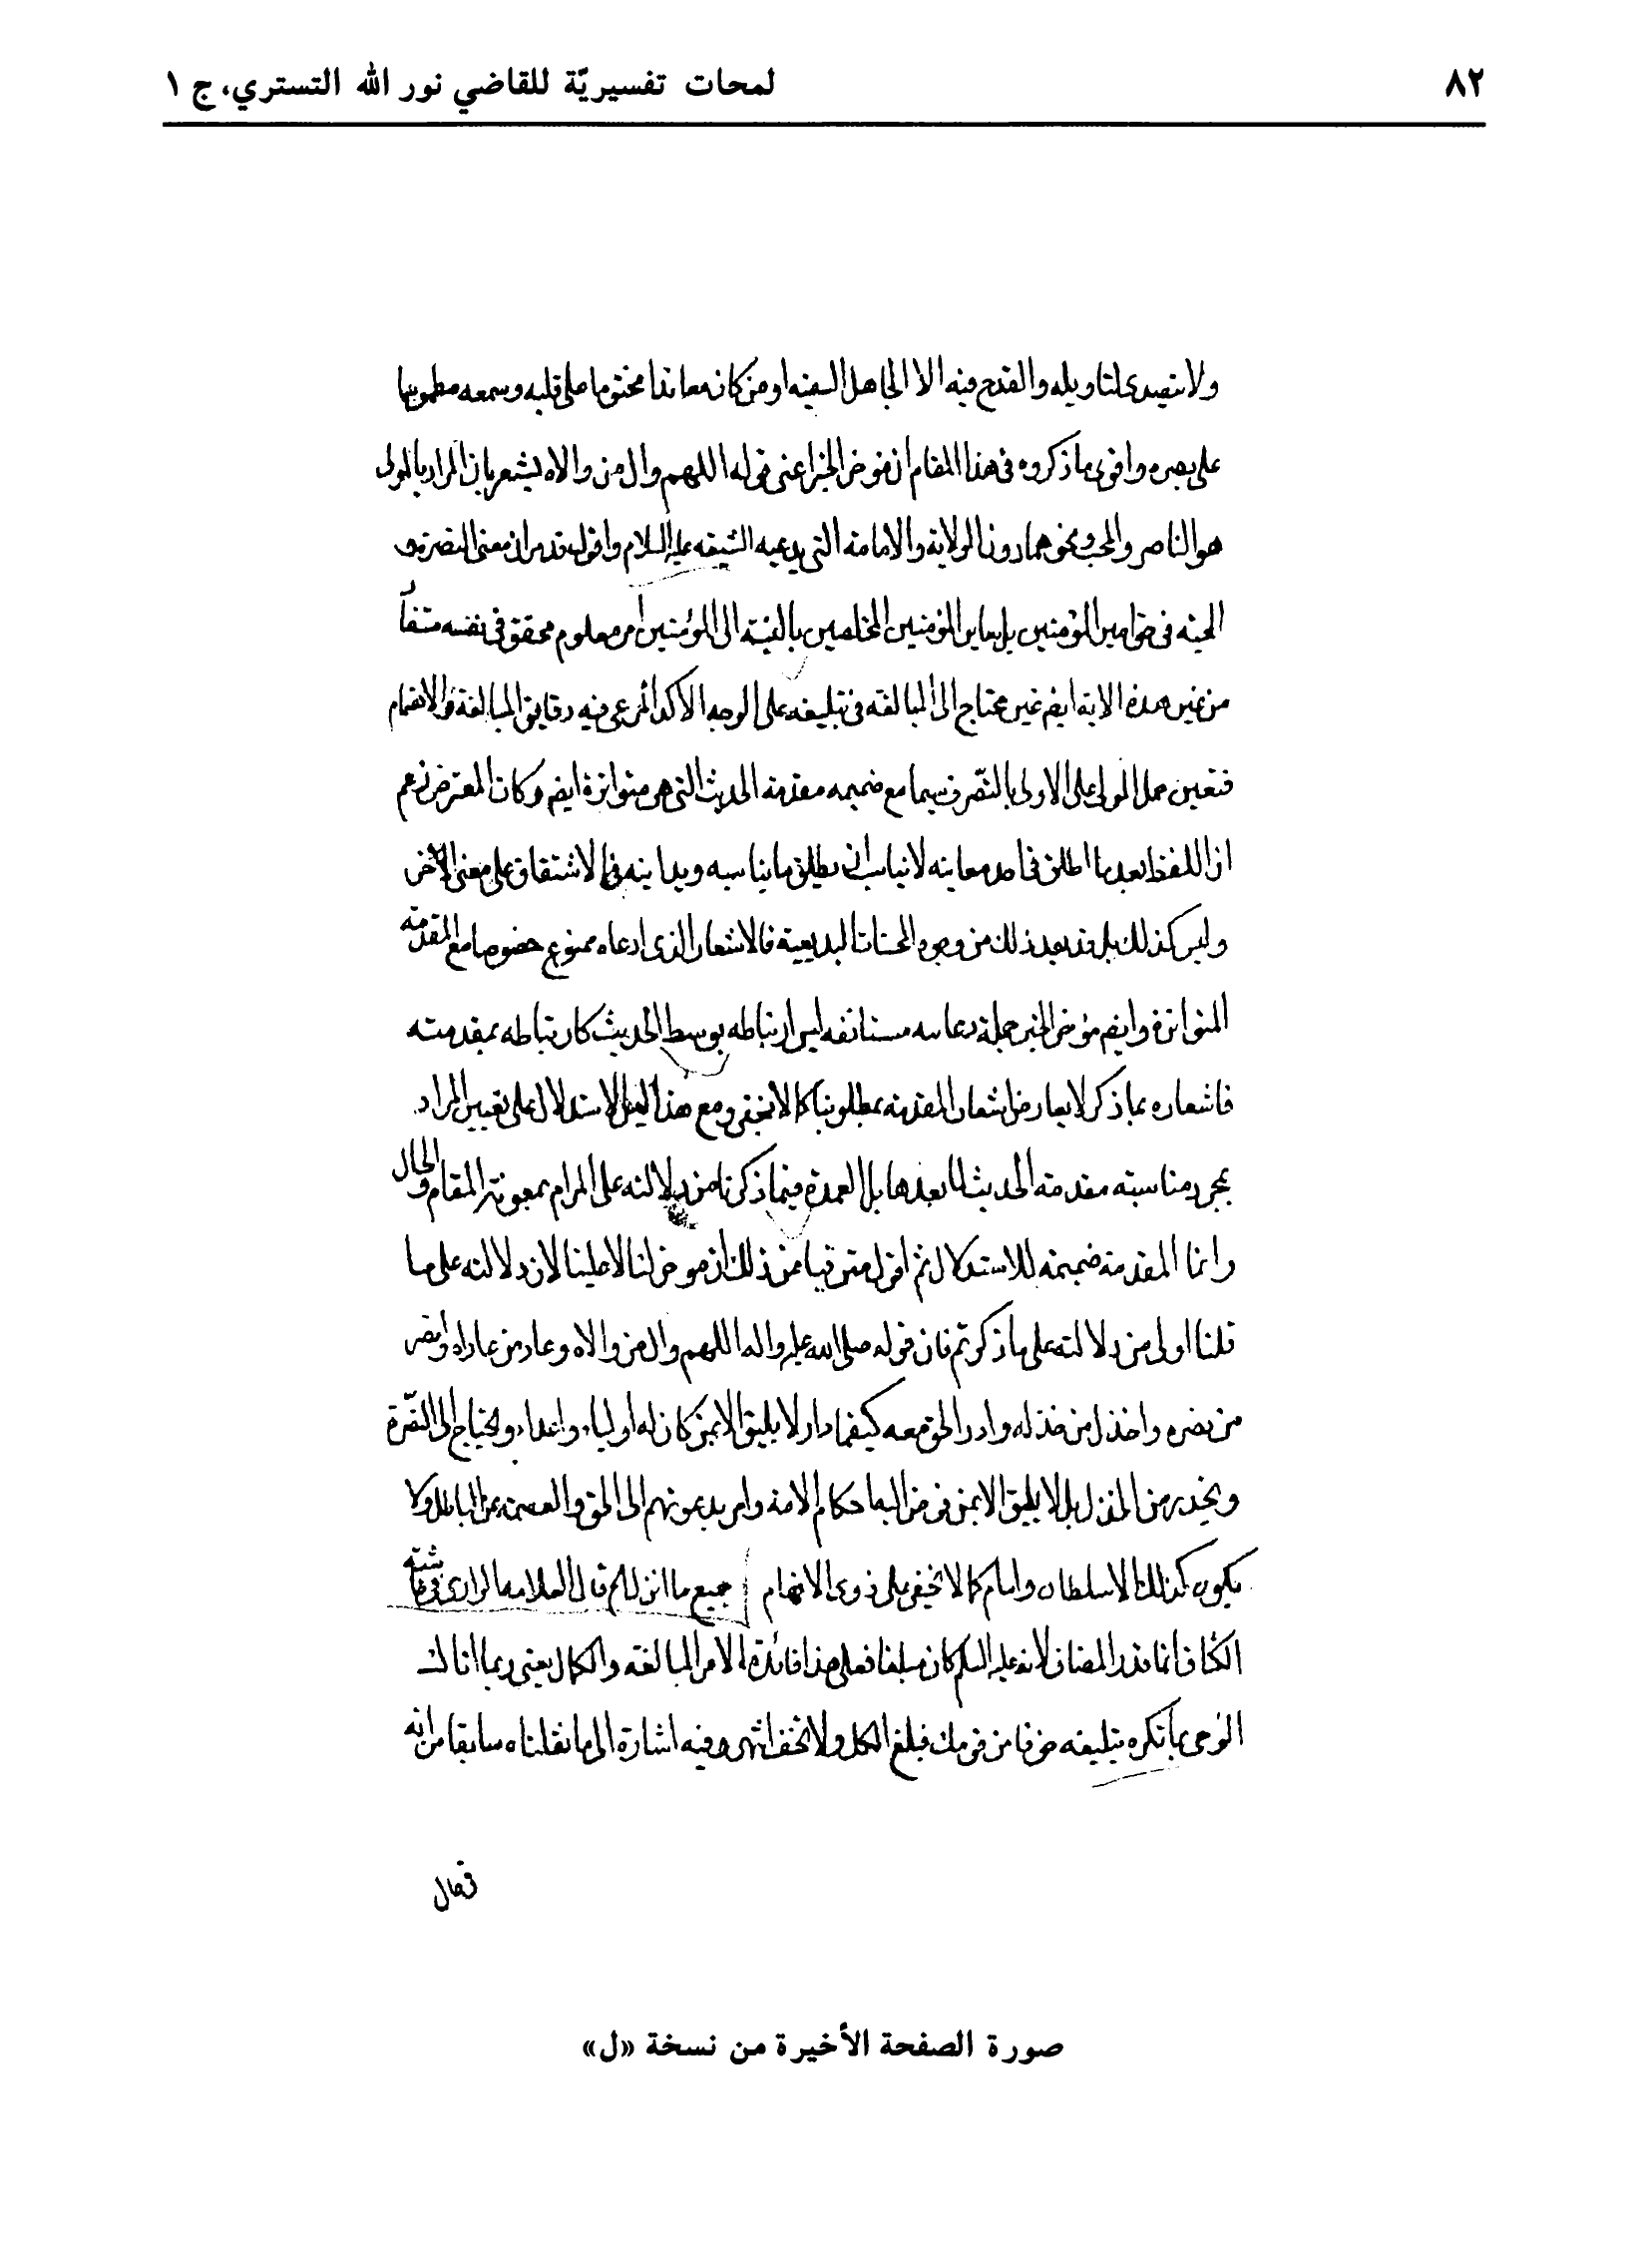 ٨٢
لمحات تفسيريّة للقاضي نور الله التستري، ج ١
ولا يتصدى لتاويله والقدح فيه الا الجاهل السفيه او من كان معاندا مختوما على قلبه وسمعه مطموسا
على بصره واقوى ما ذكروه فى هذا المقام ان موخر الخبر اعنى قوله اللهم وال من والاه يشعر بان المراد بالمولى
هو الناصر والمحب ونحوهما دون الولاية والامامة التى يدعيه الشيعه عليه السلام واقول قد مر ان معنى النصرة و
المحبة فى خواص المؤمنين بل ساير المؤمنين المخلصين بالنسبة الى المؤمنين امر معلوم محقق فى نفسه
من غير هذة الاية ايضم غير محتاج الى المبالغة فى تبليغه على الوجه الآكد المرعى فيه دقايق المبالغة والاهتمام
فتعين حمل المولى على الاولى بالتصّرف سيما مع ضميمه مقدمة الحديث التى هى متواترة ايضم وكان المعترض زعم
ان اللفظ بعد ما اطلق فى احد معانيه لا يناسب ان يطلق ما يناسبه ويدانيه فى الاشتقاق على معنى الآخر
وليس كذلك بل قد يعد ذلك من وجوه المحسنات البديعية فالاشعار الذى ادعاه ممنوع خصوصا مع المقدمة
المتواترة وايضم موخر الخبر جملة دعائيه مستانفه ليس ارتباطه بوسط الحديث كارتباطه بمقدمته
فاشعاره بما ذكر لا يعارض اشعار المقدمة بمطلوبنا كما لا يخفى ومع هذا ليس الاستدلال على تعيين المراد
بمجرد مناسبته مقدمة الحديث لما بعدها بل العمدة فيما ذكرنا من دلالته على المرام بمعونة المقام والحال
وانما المقدمة ضميمة للاستدلال ثم اقول مترقيا من ذلك ان موخر لنا لا علينا لان دلالته على ما
قلنا اولى من دلالته على ما ذكرتم فان قوله صلى الله عليه واله اللهم وال من والاه وعاد من عاداه وانصر
من نصره واخذل من خذله وادر الحق معه كيفما دار لا يليق الا بمن كان له اولياء واعداء ويحتاج الى النصّرة
ويحذر من الخذل بل لا يليق الا بمن فوض اليه احكام الامة وامر بدعوتهم الى الحق والعصمة عن الباطل ولا
يكون كذلك الا سلطان وامام كما لا يخفى على ذوى الافهام جميع ما انزل لكم قال العلامه الرازى فى حاشيته
الكشاف انما قدر المضاف لانه عليه السلم كان مبلغا فعلى هذا فائدة الامر المبالغة والكمال يعنى ربما اتاك
الوحى بما تكره تبليغه خوفا من قومك فبلغ الكل ولا تخف انتهى وفيه اشارة الى ما نقلناه سابقا من انه
قال
صورة الصفحة الأخيرة من نسخة «ل»